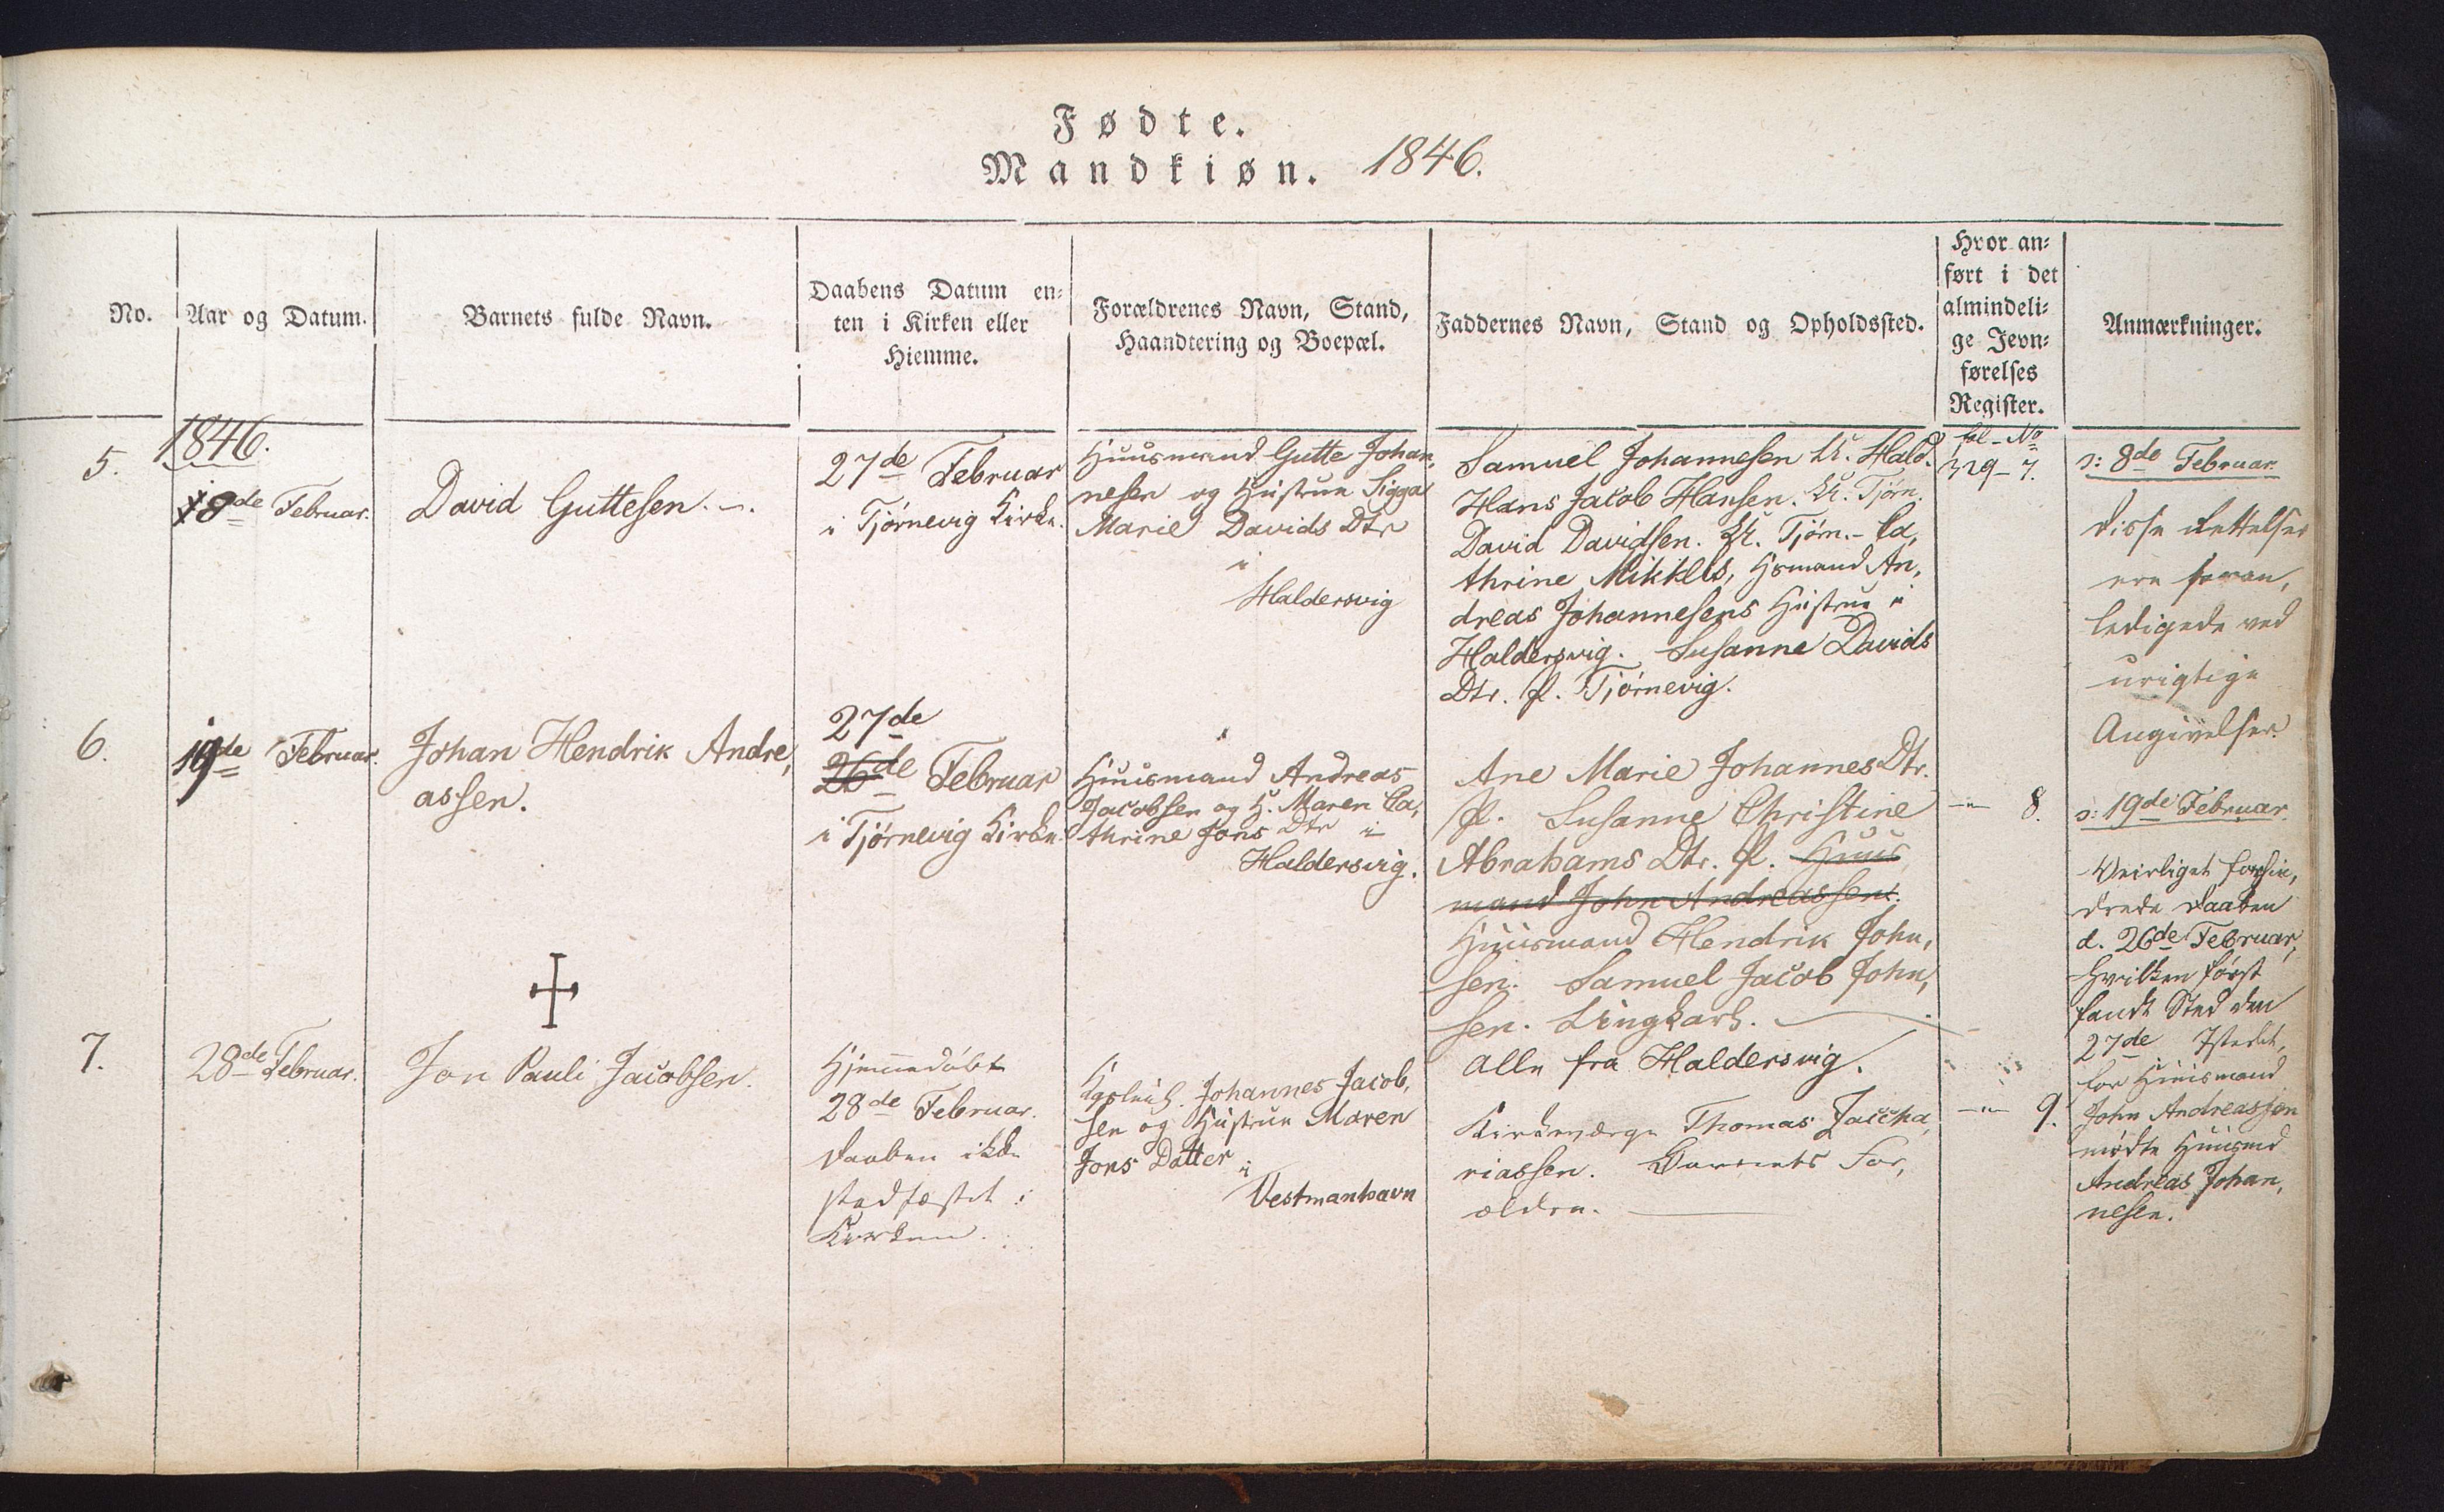 Fødte.
Mandkiøn. 1846.
No.
Aar og Datum.
Barnets fulde Navn.
Daabens Datum en=
ten i Kirken eller
Hiemme.
Forældrenes Navn, Stand,
Haandtering og Boepæl.
Faddernes Navn, Stand og Opholdssted.
Hvor an=
ført i det
almindeli=
ge Jevn=
førelses
Register.
Anmærkninger.
5.
1846.
8de Februar.
David Guttesen.
27de Februar
i Tjørnevig Kirke.
Huusmand Gutte Johan,
nesen og Hustrue Sigga
Marie Davids Dtr
i
Haldersvig
Samuel Johannesen K. Hald.
Hans Jacob Hansen. K. Tjørn.
David Davidsen. K. Tjørn. - Ca,
thrine Mikkels, Hsmand An,
dreas Johannesens Hustrue i
Haldersvig. Susanne Davids
Dtr. p. Tjørnevig.
fol - No
329 - 7.
ɔ: 8de Februar.
Disse Rettelser
ere foran,
ledigede ved
urigtige
Angivelser.
6.
19de Februar.
Johan Hendrik Andre,
assen.
27de
26de Februar
i Tjørnevig Kirke.
Huusmand Andreas
Jacobsen og H. Maren Ca,
thrine Jons Dtr i
Haldersvig.
Ane Marie Johannes Dtr.
p. Susanne Christine
Abrahams Dtr. p. Huus
mand John Andreassen.
Huusmand Hendrik John,
sen. Samuel Jacob John,
sen. Ungkarl.
Alle fra Haldersvig.
-"- 8.
ɔ: 19de Februar.
Veirliget forhin,
drede Daaben
d. 26de Februar,
hvilken først
fandt Sted den
27de Istedet,
for Huusmand
John Andreassen
mødte Huusmd
Andreas Johan,
nesen.
7.
28de Februar.
Jon Pauli Jacobsen.
Hjemmedøbt
28de Februar.
Daaben ikke
stadfæstet i
Kirken.
Johannes Jacob,
sen og Hustrue Maren
Jons Datter i
Vestmanhavn
Kirkeværge Thomas Zaccha,
riassen. Barnets For,
ældre.
-"- 9.